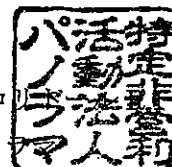 特定非営利
活動法人
パノラマ